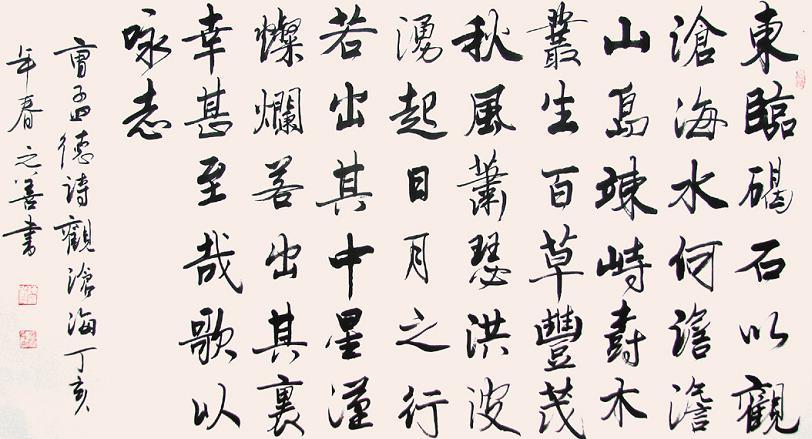 東臨碣石以觀
滄海水何澹澹
山島竦峙樹木
叢生百草豐茂
秋風蕭瑟洪波
湧起日月之行
若出其中星漢
燦爛若出其裏
幸甚至哉歌以
咏志
曹孟德詩觀滄海丁亥
年春之善書